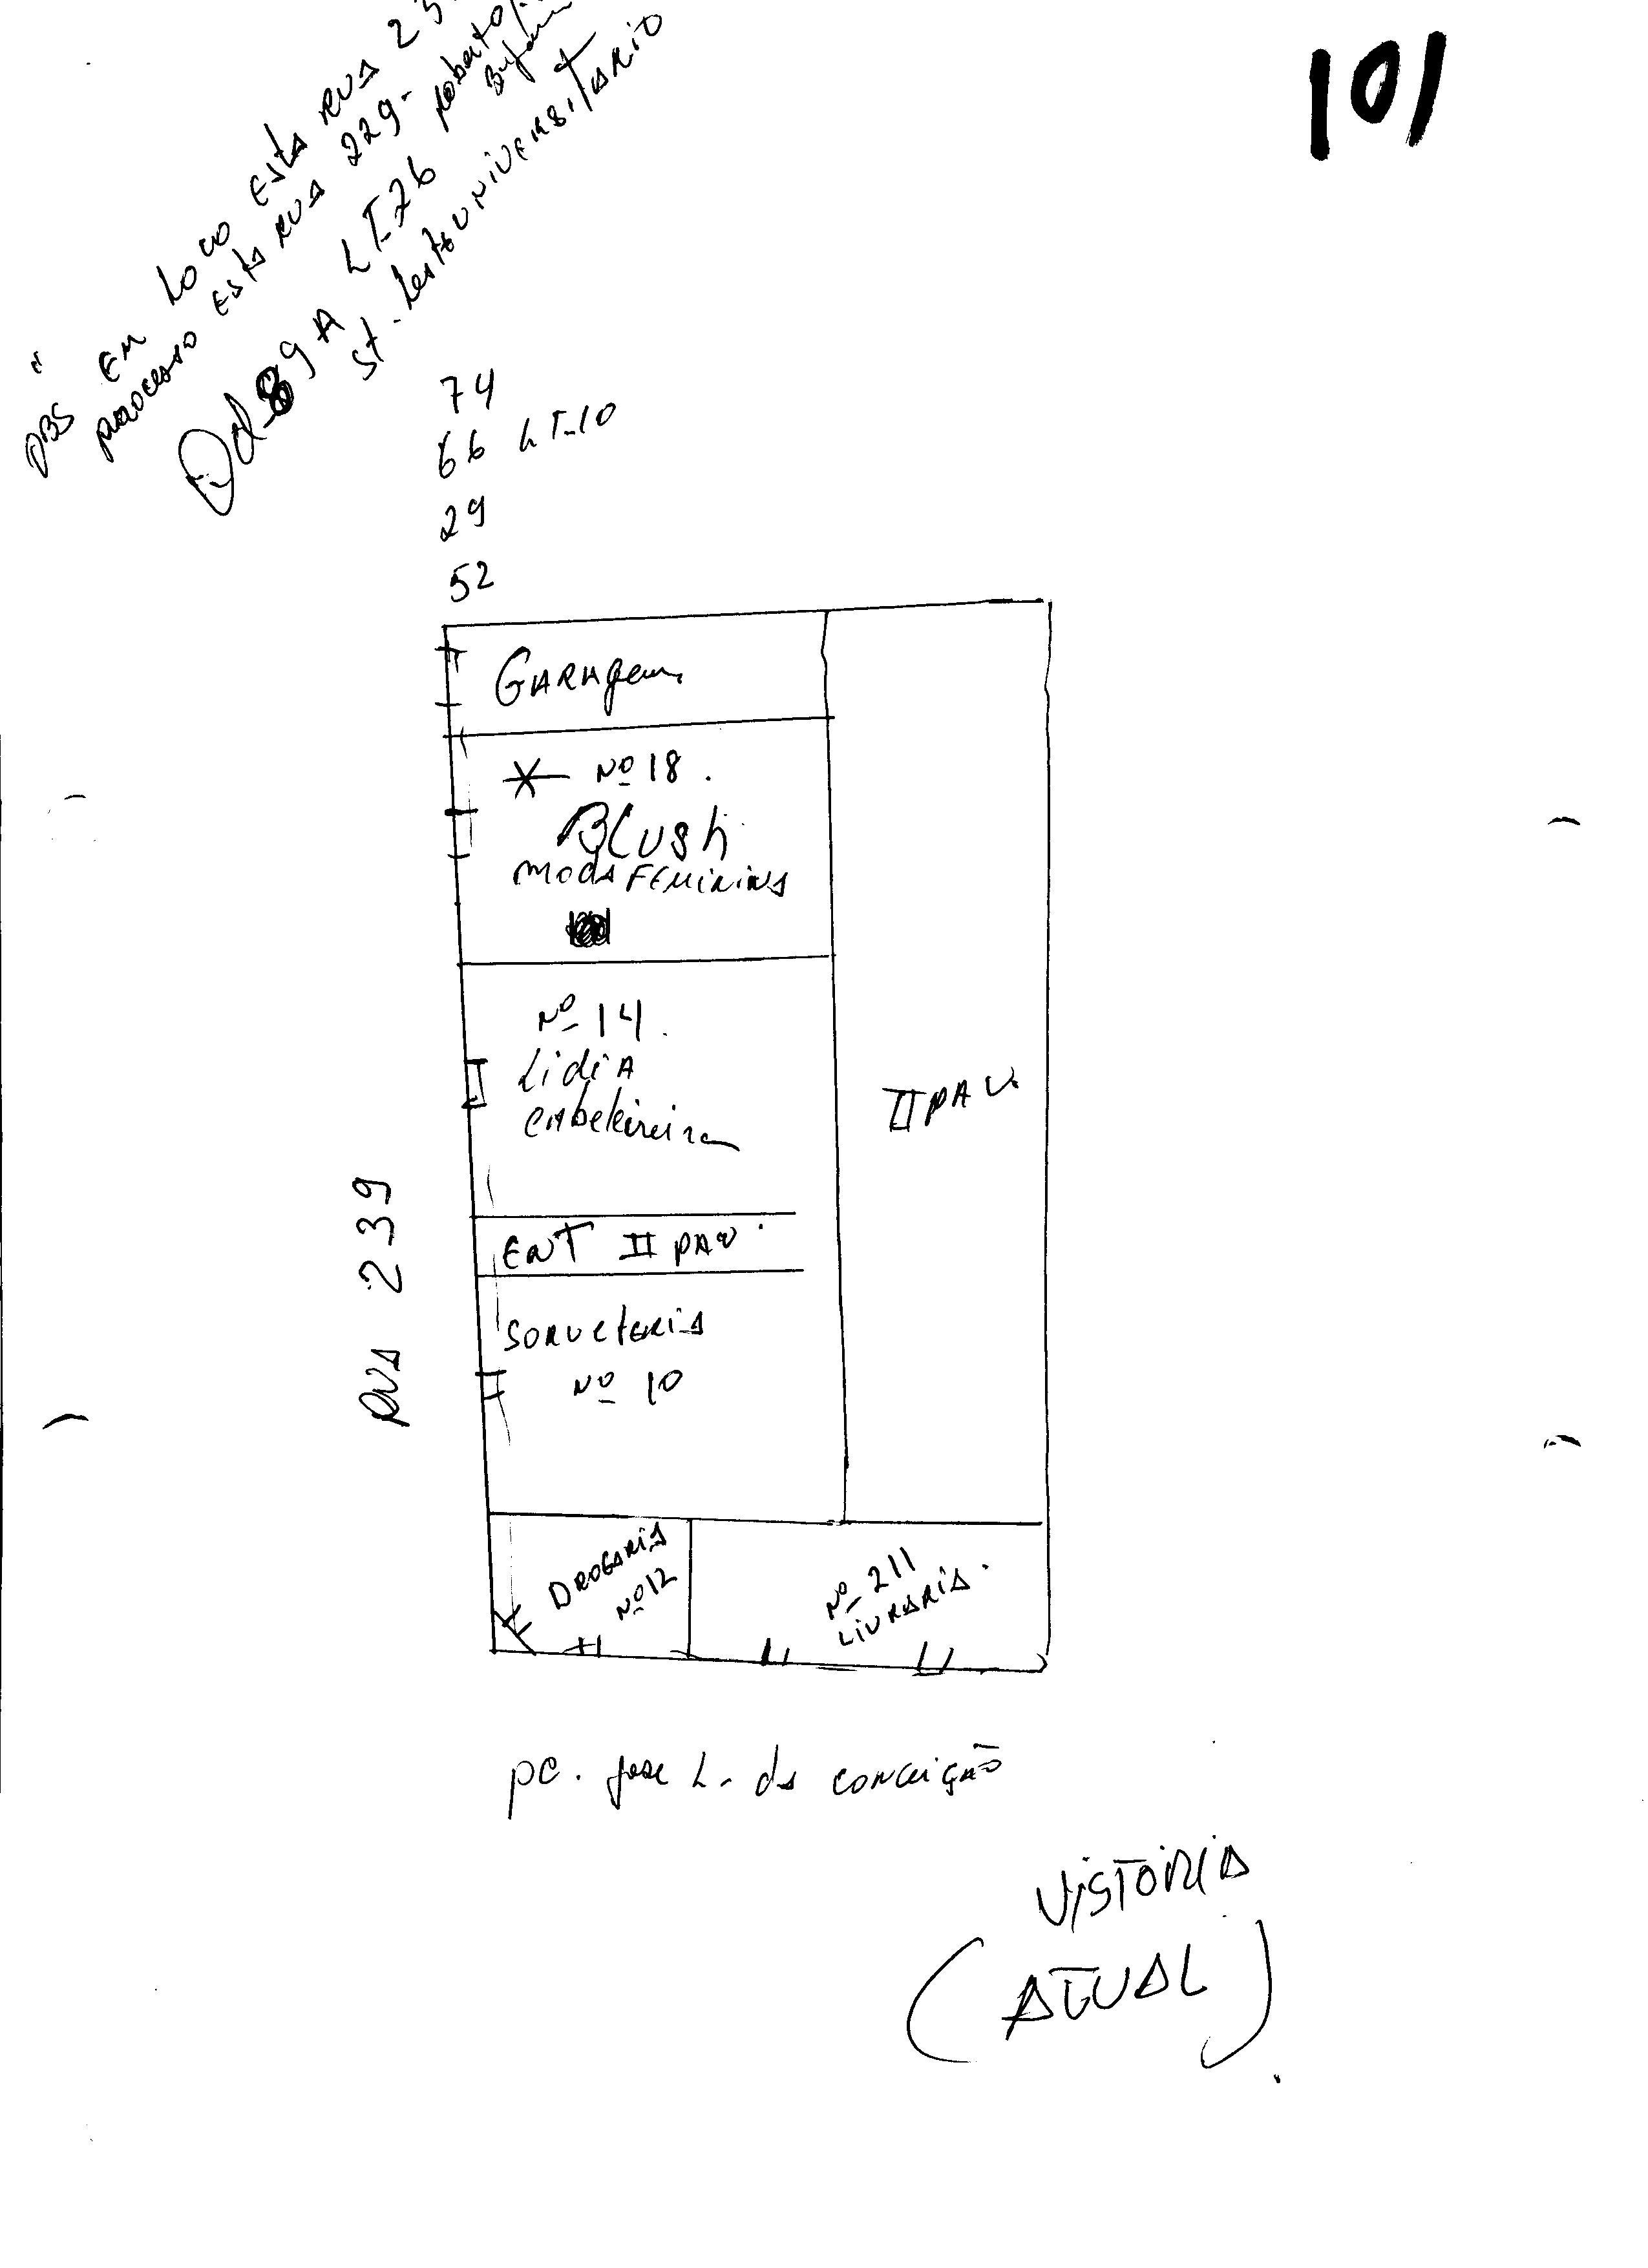 101
OBS " EM LOCO ESTA RUA 23
PROCESSO ESTA RUA 229-
Qd-89A LT-26
St. Leste UNIVERSITARIO
74
66 LT-10
29
52
GARAgem
Nº 18.
BLush
MODA FEMININA
Nº 14.
LidiA
CAbeleireira
II PAV.
ENT II PAV.
SORVETERIA
Nº 10
RUA 239
DROGARIA
Nº 12
Nº 211
LIVRARIA.
pc. Jose L. da CONCEIÇÃO
VISTORIA
(ATUAL)